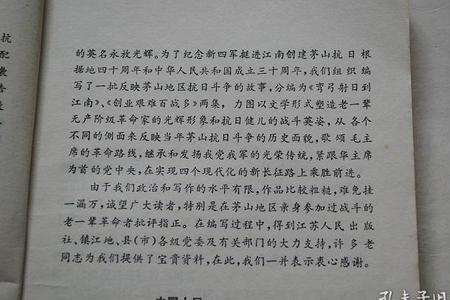 抗
配
的英名永放光辉。为了纪念新四军挺进江南创建茅山抗日根
据地四十周年和中华人民共和国成立三十周年,我们组织编
写了一批反映茅山地区抗日斗争的故事,分编为《弯弓射日到
江南》、《创业艰难百战多》两集,力图以文学形式塑造老一辈
无产阶级革命家的光辉形象和抗日健儿的战斗英姿,从各个
不同的侧面来反映当年茅山抗日斗争的历史面貌,歌颂毛主
席的革命路线,继承和发扬我党我军的光荣传统,紧跟华主席
为首的党中央,在实现四个现代化的新长征路上乘胜前进。
由于我们政治和写作的水平有限,作品比较粗糙,难免挂
一漏万,诚望广大读者,特别是在茅山地区亲身参加过战斗的
老一辈革命者批评指正。在编写过程中,得到江苏人民出版
社,镇江地、县(市)各级党委及有关部门的大力支持,许多老
同志为我们提供了宝贵资料,在此,我们一并表示衷心感谢。